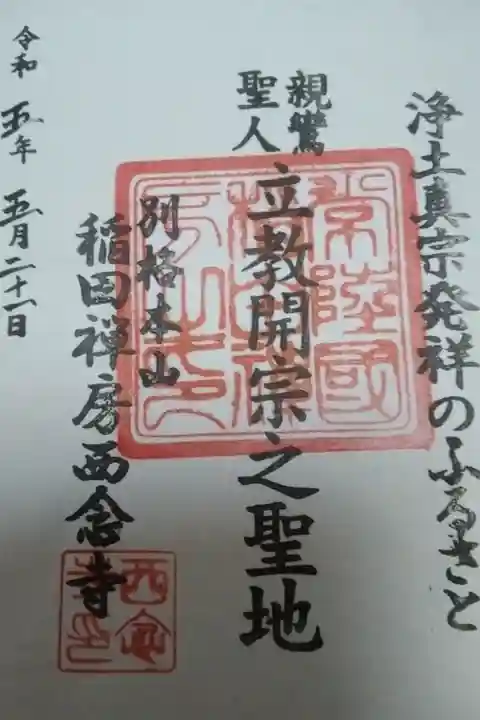 浄土真宗発祥のふるさと
親鸞
聖人
立教開宗之聖地
別格本山
稲田禅房西念寺
令和五年五月二十一日
常陸國